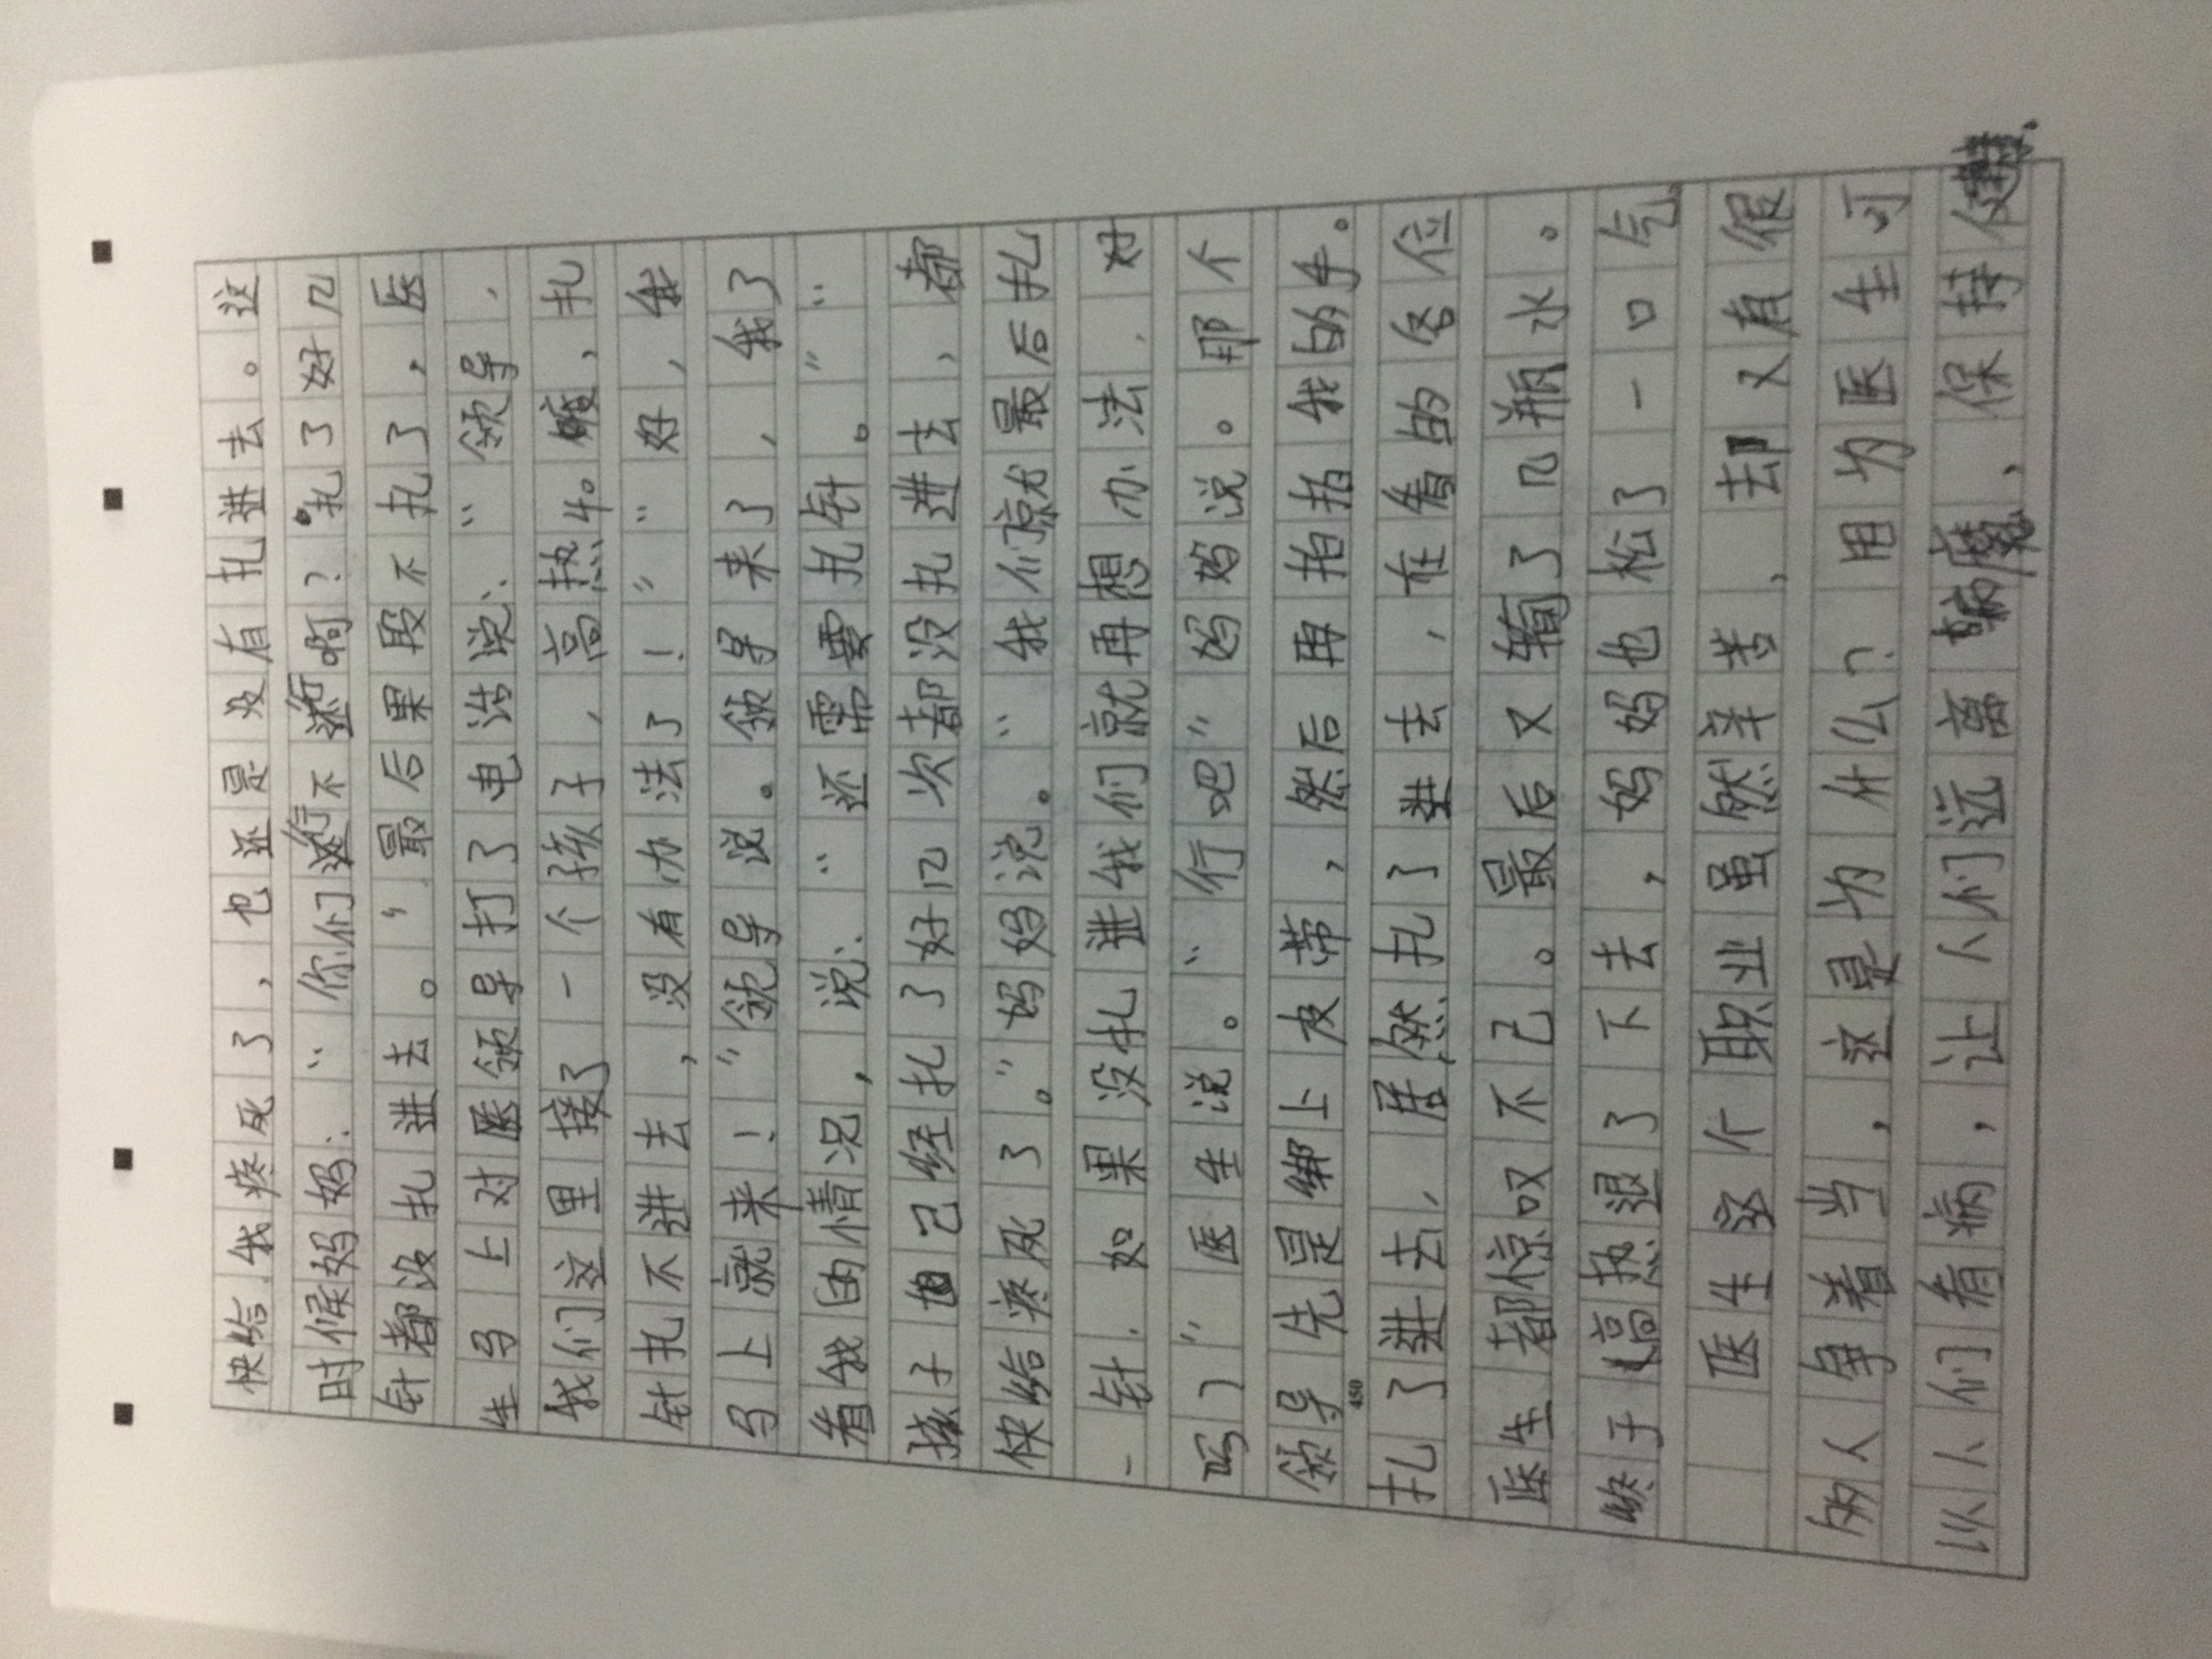 快给我疼死了，也还是没有扎进去。这
时候妈妈：“你们行不行啊？”扎了好几
针都没扎进去。”最后果段不扎了，医
生马上对医领导打了电话说：“领导，
我们这里接了一个孩子，高热40度，扎
针扎不进去，没有办法了！”“好，我
马上就来！”领导说。领导来了，我了
看我的情况，说：“还需要扎针。”“
孩子自己经扎了好几次都没扎进去，都
快给疼死了。”妈妈说。“我们惊尤最后扎
一针，如果没扎进我们就再想办法，对
吗？”医生说。“行吧”妈妈说。那个
领导先是绑上皮带，然后再拍拍我的手。
450
扎了进去，居然扎了进去，在看的各位
医生都惊叹不己。最后又输了几瓶水。
终于高热退了下去，妈妈也松了一口气
医生这个职业虽然辛苦，却又有很
多人争着当，这是为什么？因为医生可
以人们看病，让人们远离病魔，保持健康.